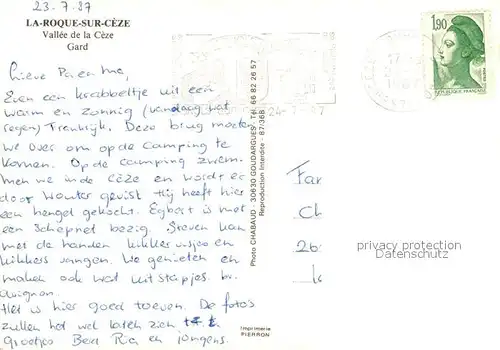 23-7-87
LA-ROQUE-SUR-CÈZE
Vallée de la Cèze
Gard
Lieve Pa en Ma,
Even een krabbeltje uit een
warm en zonnig (vandaag wat
regen) Frankrijk. Deze brug moeten
we over om op de camping te
komen. Op de camping zwem-
men we in de Cèze en wordt er
door Wouter gevist. Hij heeft hier
een hengel gekocht. Egbert is met
een schepnet bezig. Steven kan
met de handen kikkervisjes en
kikkers vangen. We genieten en
maken ook wat uitstapjes. bv.
Avignon.
Het is hier goed toeven. De foto's
zullen het wel laten zien.
Groetjes Bea Ria en jongens.
Photo CHABAUD - 30630 GOUDARGUES - Tél. 66 82 26 57
Reproduction Interdite - 87/36B
Imprimerie
PIERRON
24-7
1,90
REPUBLIQUE FRANÇAISE
Fam
Ch
26
privacy protection
Datenschutz